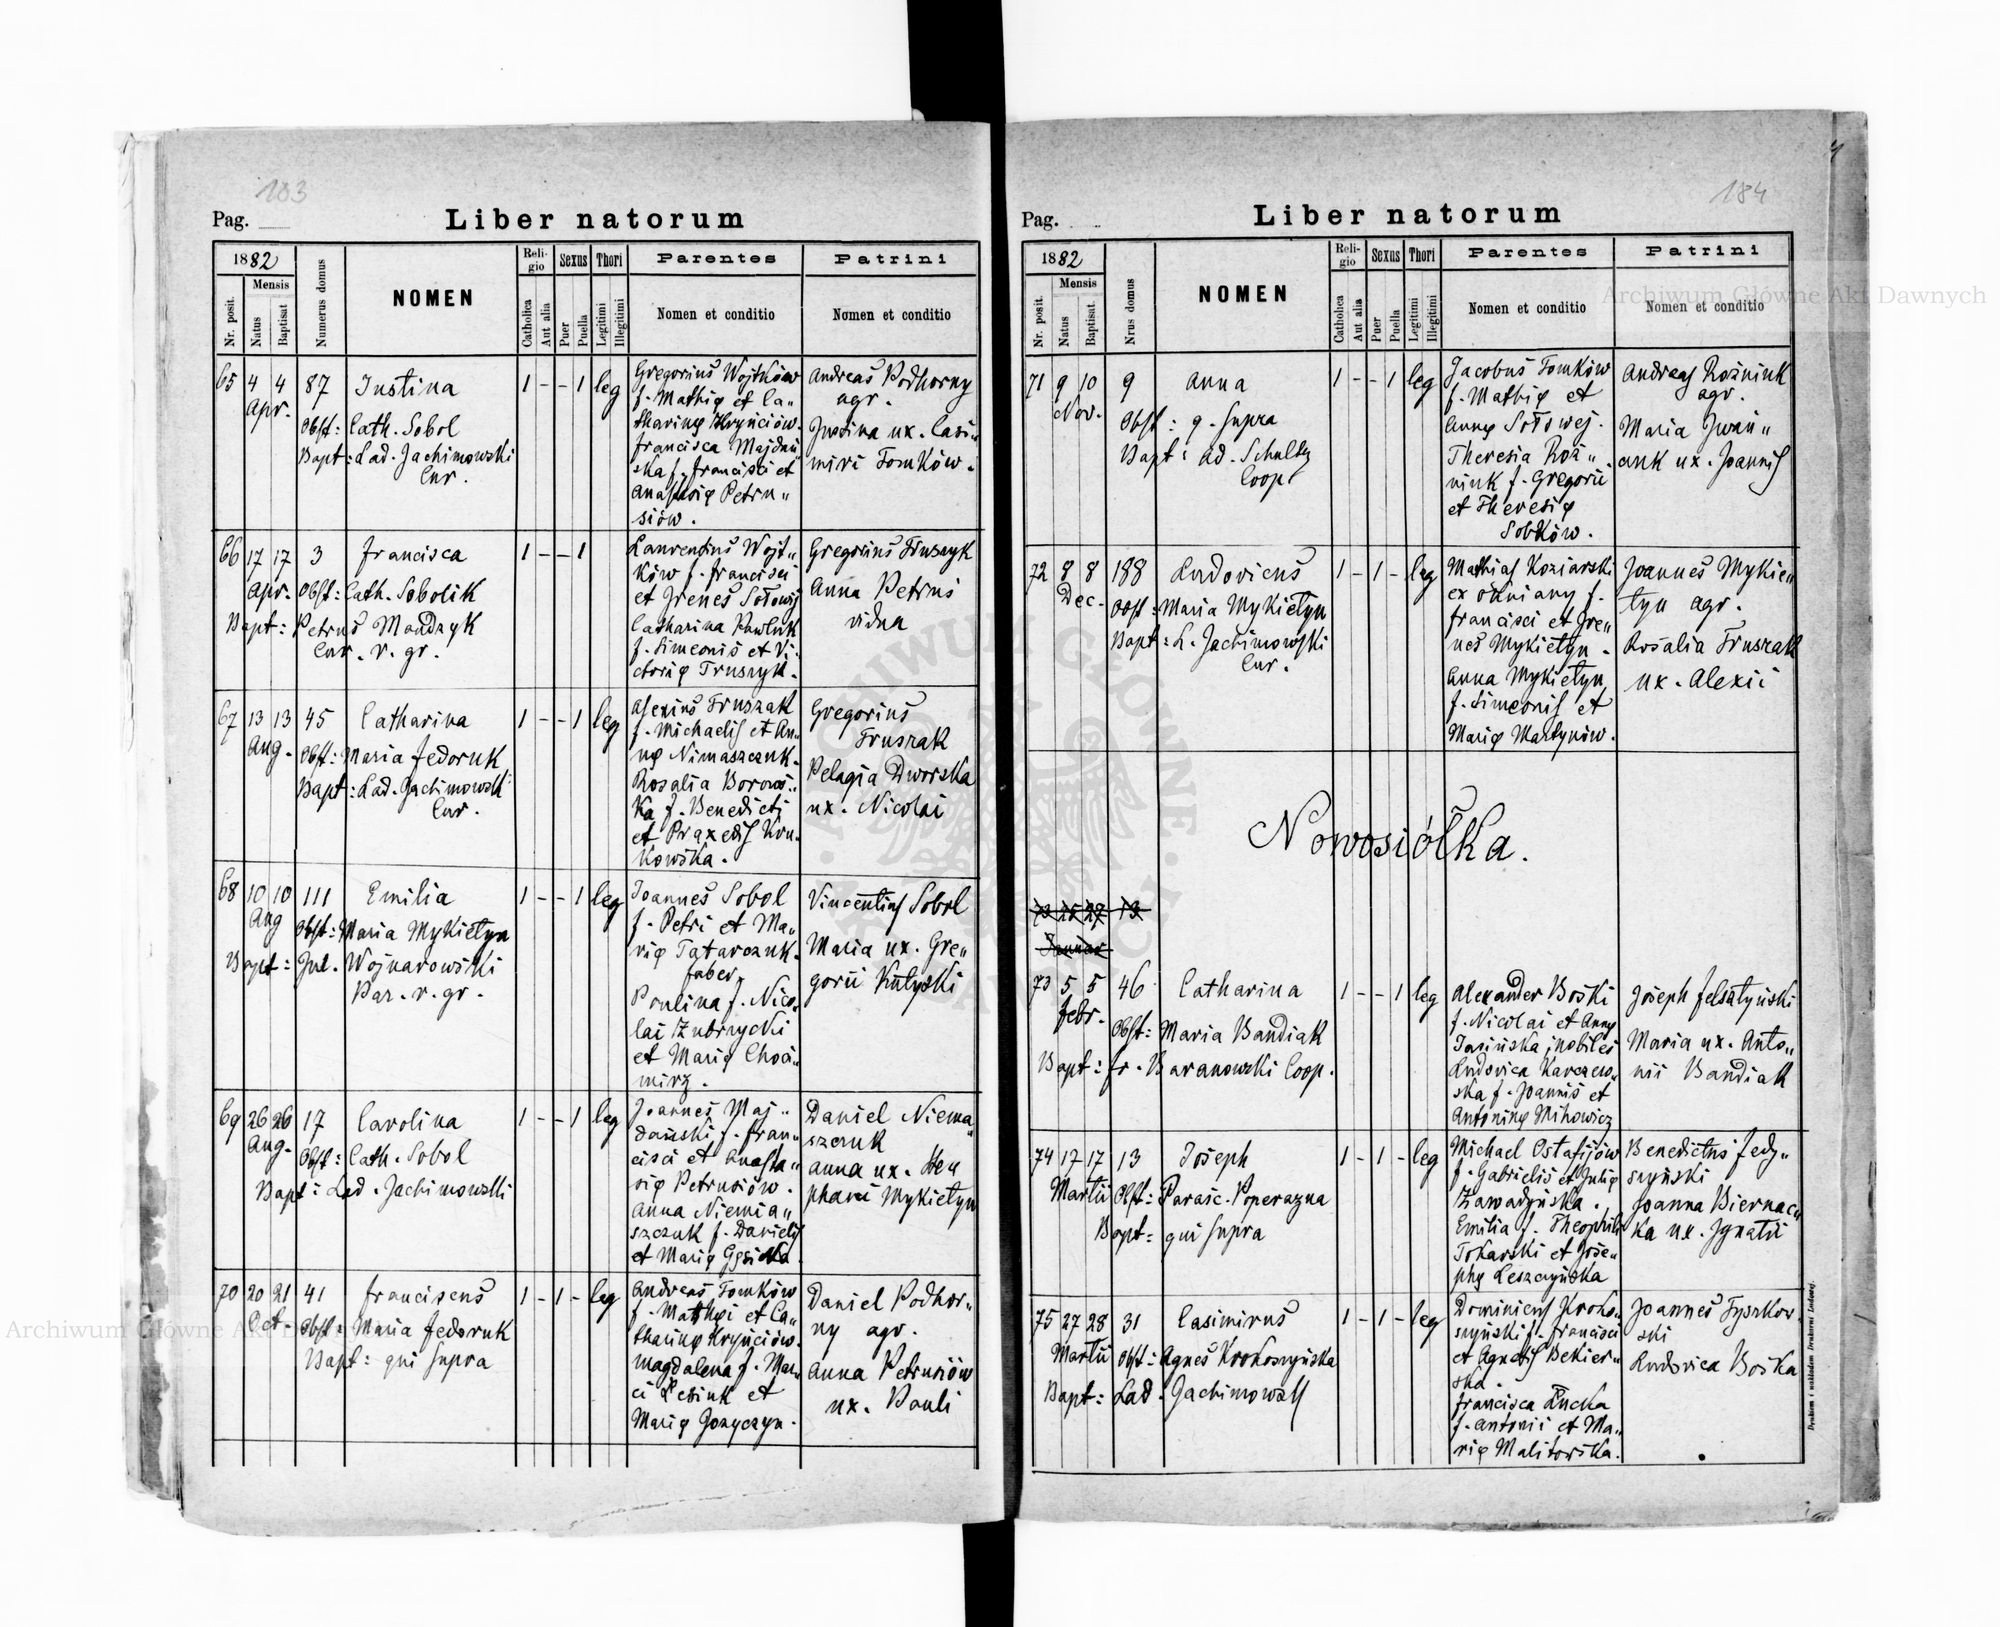 103
Pag.
Liber natorum
1882
Mensis
Nr. posit.
Natus
Baptisat
Numerus domus
NOMEN
Reli-
gio
Sexus
Thori
Catholica
Aut alia
Puer
Puella
Legitimi
Illegitimi
Parentes
Patrini
Nomen et conditio
Nomen et conditio
65 4 4 87 Justina 1 - - 1 leg
Apr.
Obst: Cath. Sobol
Bapt: Lad. Jachimowski
Cur.
Gregorius Wojtków
f. Mathię et Ca„
tharinę Hryńciów.
Francisca Majdań
ska f. Francisci et
Anastasię Petru„
siów.
Andreas Podhorny
agr.
Justina ux. Casi„
miri Tomków.
66 17 17 3 Francisca 1 - - 1
Apr. Obst: Cath. Sobolik
Bapt: Petrus Mandzyk
Cur. r. gr.
Laurentius Wojt„
ków f. Francisci
et Irenes Sołowij
Catharina Pawluk
f. Simeonis et Vi„
ctorię Truszyk.
Gregorius Truszyk
Anna Petruś
vidua
67 13 13 45 Catharina 1 - - 1 leg
Aug. Obst: Maria Fedoruk
Bapt: Lad. Jachimowski
Cur.
Alexius Truszak
f. Michaelis et An„
nę Nimaszczuk.
Rosalia Borows„
ka f. Benedicti
et Praxedis Kru„
kowska.
Gregorius
Truszak
Pelagia Dworska
ux. Nicolai
68 10 10 111 Emilia 1 - - 1 leg
Aug
Obst: Maria Mykietyn
Bapt: Jul. Wojnarowski
Par. r. gr.
Joannes Sobol
f. Petri et Ma„
rię Tatarczuk.
faber
Paulina f. Nico„
lai Zubrzycki
et Marię Choci„
mirz.
Vincentius Sobol
Maria ux. Gre„
gorii Kulyski
69 26 26 17 Carolina 1 - - 1 leg
Aug. Obst: Cath. Sobol
Bapt: Lad. Jachimowski
Joannes Maj„
dański f. Fran„
cisci et Anasta„
się Petrusiów.
Anna Niemia„
szczuk f. Danielis
et Marię
Daniel Niema„
szczuk
Anna ux. Ste„
phani Mykietyn
70 20 21 41 Franciscus 1 - 1 - leg
Oct. Obst: Maria Fedoruk
Bapt: qui supra
Andreas Tomków
f. Mathęi et Ca„
tharinę Hryńciów.
Magdalena f. Mar„
ci Lesiuk et
Marię Jozyczyn.
Daniel Podhor„
ny agr.
Anna Petrusiów
ux. Pauli
184
Pag.
Liber natorum
1882
Mensis
Nr. posit.
Natus
Baptisat.
Nrus domus
NOMEN
Reli-
gio
Sexus
Thori
Catholica
Aut alia
Puer
Puella
Legitimi
Illegitimi
Parentes
Patrini
Nomen et conditio
Nomen et conditio
71 9 10 9 Anna 1 - - 1 leg
Nov. Obst: q. supra
Bapt: Ad. Schultz
Coop.
Jacobus Tomków
f. Mathię et
Annę Sołowej.
Theresia Roż„
niuk f. Gregorii
et Theresię
Sobków.
Andreas Rożniuk
agr.
Maria Iwań„
cuk ux. Joannis
72 8 8 188 Ludovicus 1 - 1 - leg
Dec. Obst: Maria Mykietyn
Bapt: L. Jachimowski
Cur.
Mathias Koziarski
ex Okniany f.
Francisci et Ire„
nes Mykietyn.
Anna Mykietyn
f. Simeonis et
Marię Martynów.
Joannes Mykie„
tyn agr.
Rosalia Truszak
ux. Alexii
Nowosiółka.
73 25 27 13
Januar
73 5 5 46 Catharina 1 - - 1 leg
Febr. Obst: Maria Bandiak
Bapt: Fr. Baranowski Coop.
Alexander Boski
f. Nicolai et Annę
Jasińska, nobiles
Ludovica Karczew„
ska f. Joannis et
Antoninę Mihowicz
Joseph Felsztyński
Maria ux. Anto„
nii Bandiak
74 17 17 13 Joseph 1 - 1 - leg
Martii Obst: Parasc. Poperazna
Bapt: qui supra
Michael Ostafijów
f. Gabrielis et Julię
Zawadyńska.
Emilia f. Theophili
Tokarski et Jose„
phę Leszczyńska
Benedictus Fedy„
szyński
Joanna Biernac„
ka ux. Ignatii
75 27 28 31 Casimirus 1 - 1 - leg
Martii Obst: Agnes Krokoszyńska
Bapt: Lad. Jachimowski
Dominicus Kroko„
szyński f. Francisci
et Agnetis Bekier„
ska.
Francisca Łucka
f. Antonii et Ma„
rię Malitowska.
Joannes Tyszkow„
ski
Ludovica Boska
Drukiem i nakładem Drukarni Ludowej.
Archiwum Główne Akt Dawnych
Archiwum Główne Akt Dawnych
ARCHIWUM GŁÓWNE AKT DAWNYCH